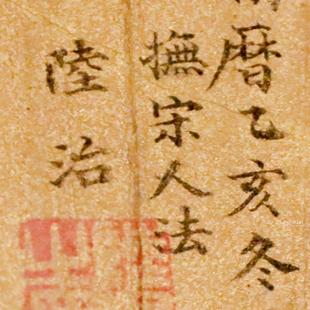 曆乙亥冬
撫宋人法
陸治